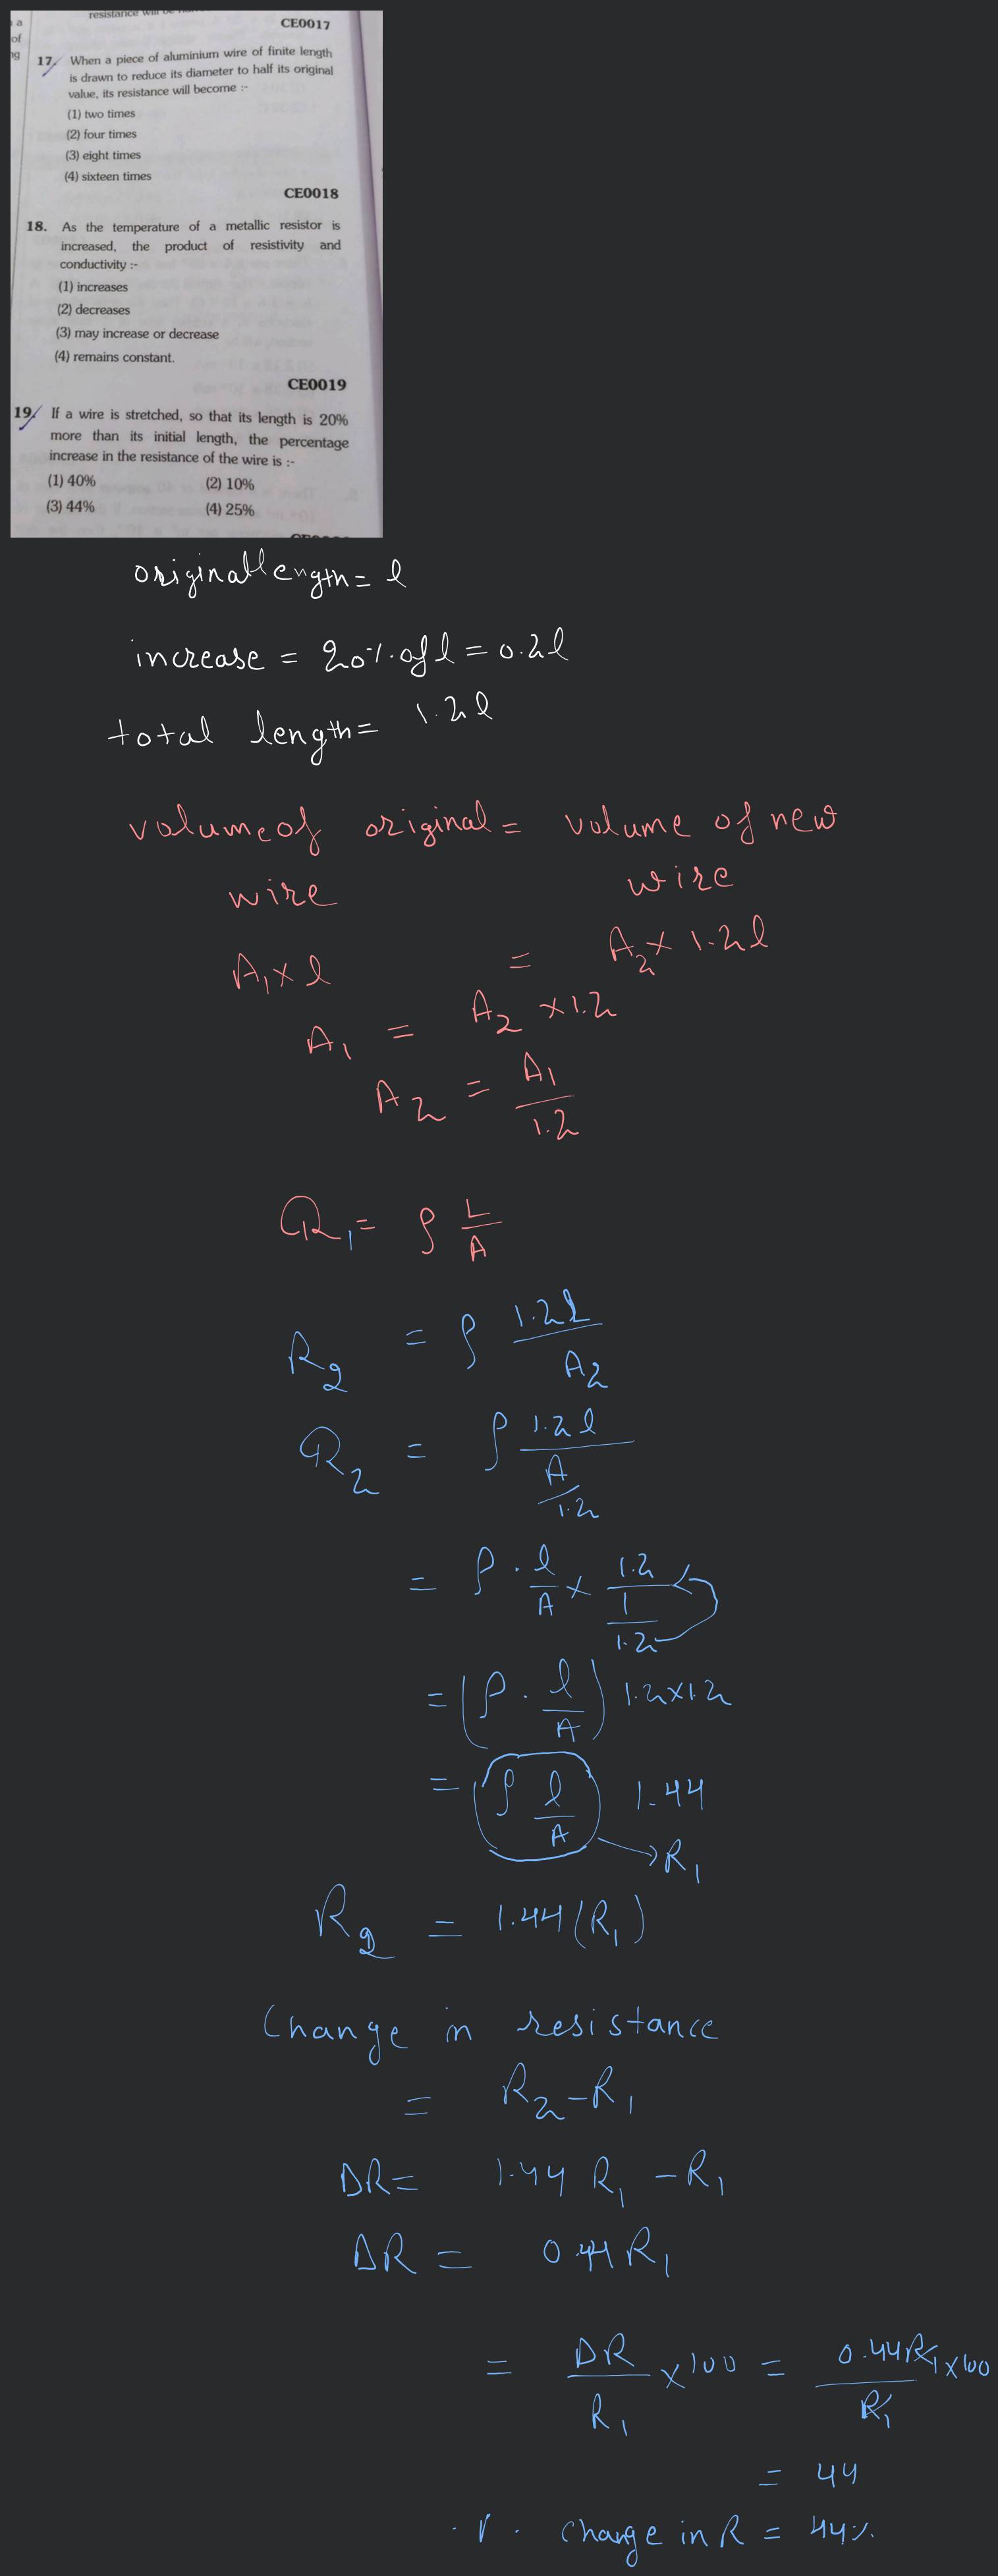 a
of
ng
resistance will be
CE0017
17. When a piece of aluminium wire of finite length
is drawn to reduce its diameter to half its original
value, its resistance will become :-
(1) two times
(2) four times
(3) eight times
(4) sixteen times
CE0018
18. As the temperature of a metallic resistor is
increased, the product of resistivity and
conductivity :-
(1) increases
(2) decreases
(3) may increase or decrease
(4) remains constant.
CE0019
19. If a wire is stretched, so that its length is 20%
more than its initial length, the percentage
increase in the resistance of the wire is :-
(1) 40% (2) 10%
(3) 44% (4) 25%
original length = l
increase = 20% of l = 0.2l
total length = 1.2l
volume of original = volume of new
wire wire
A₁ × l = A₂ × 1.2l
A₁ = A₂ × 1.2
A₂ = A₁/1.2
R₁ = ρ L/A
R₂ = ρ 1.2l/A₂
R₂ = ρ 1.2l/(A/1.2)
= ρ · l/A × 1.2/(1/1.2)
= (ρ · l/A) 1.2×1.2
= (ρ l/A) 1.44
→ R₁
R₂ = 1.44 (R₁)
Change in resistance
= R₂ - R₁
ΔR = 1.44 R₁ - R₁
ΔR = 0.44 R₁
= ΔR/R₁ × 100 = 0.44R₁ × 100/R₁
= 44
% change in R = 44%